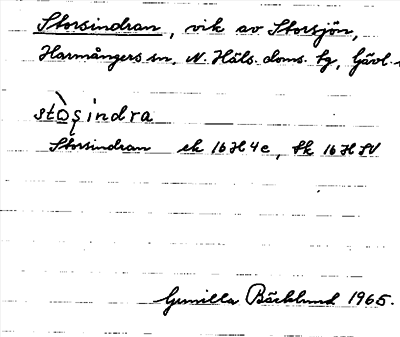 Storsindran, vik av Storsjön,
Harmångers sn, N. Häls. doms. tg, Gävl.
stòşindra
Storsindran ek 16H4e, Sk 16H SV
Gunilla Bäcklund 1965.